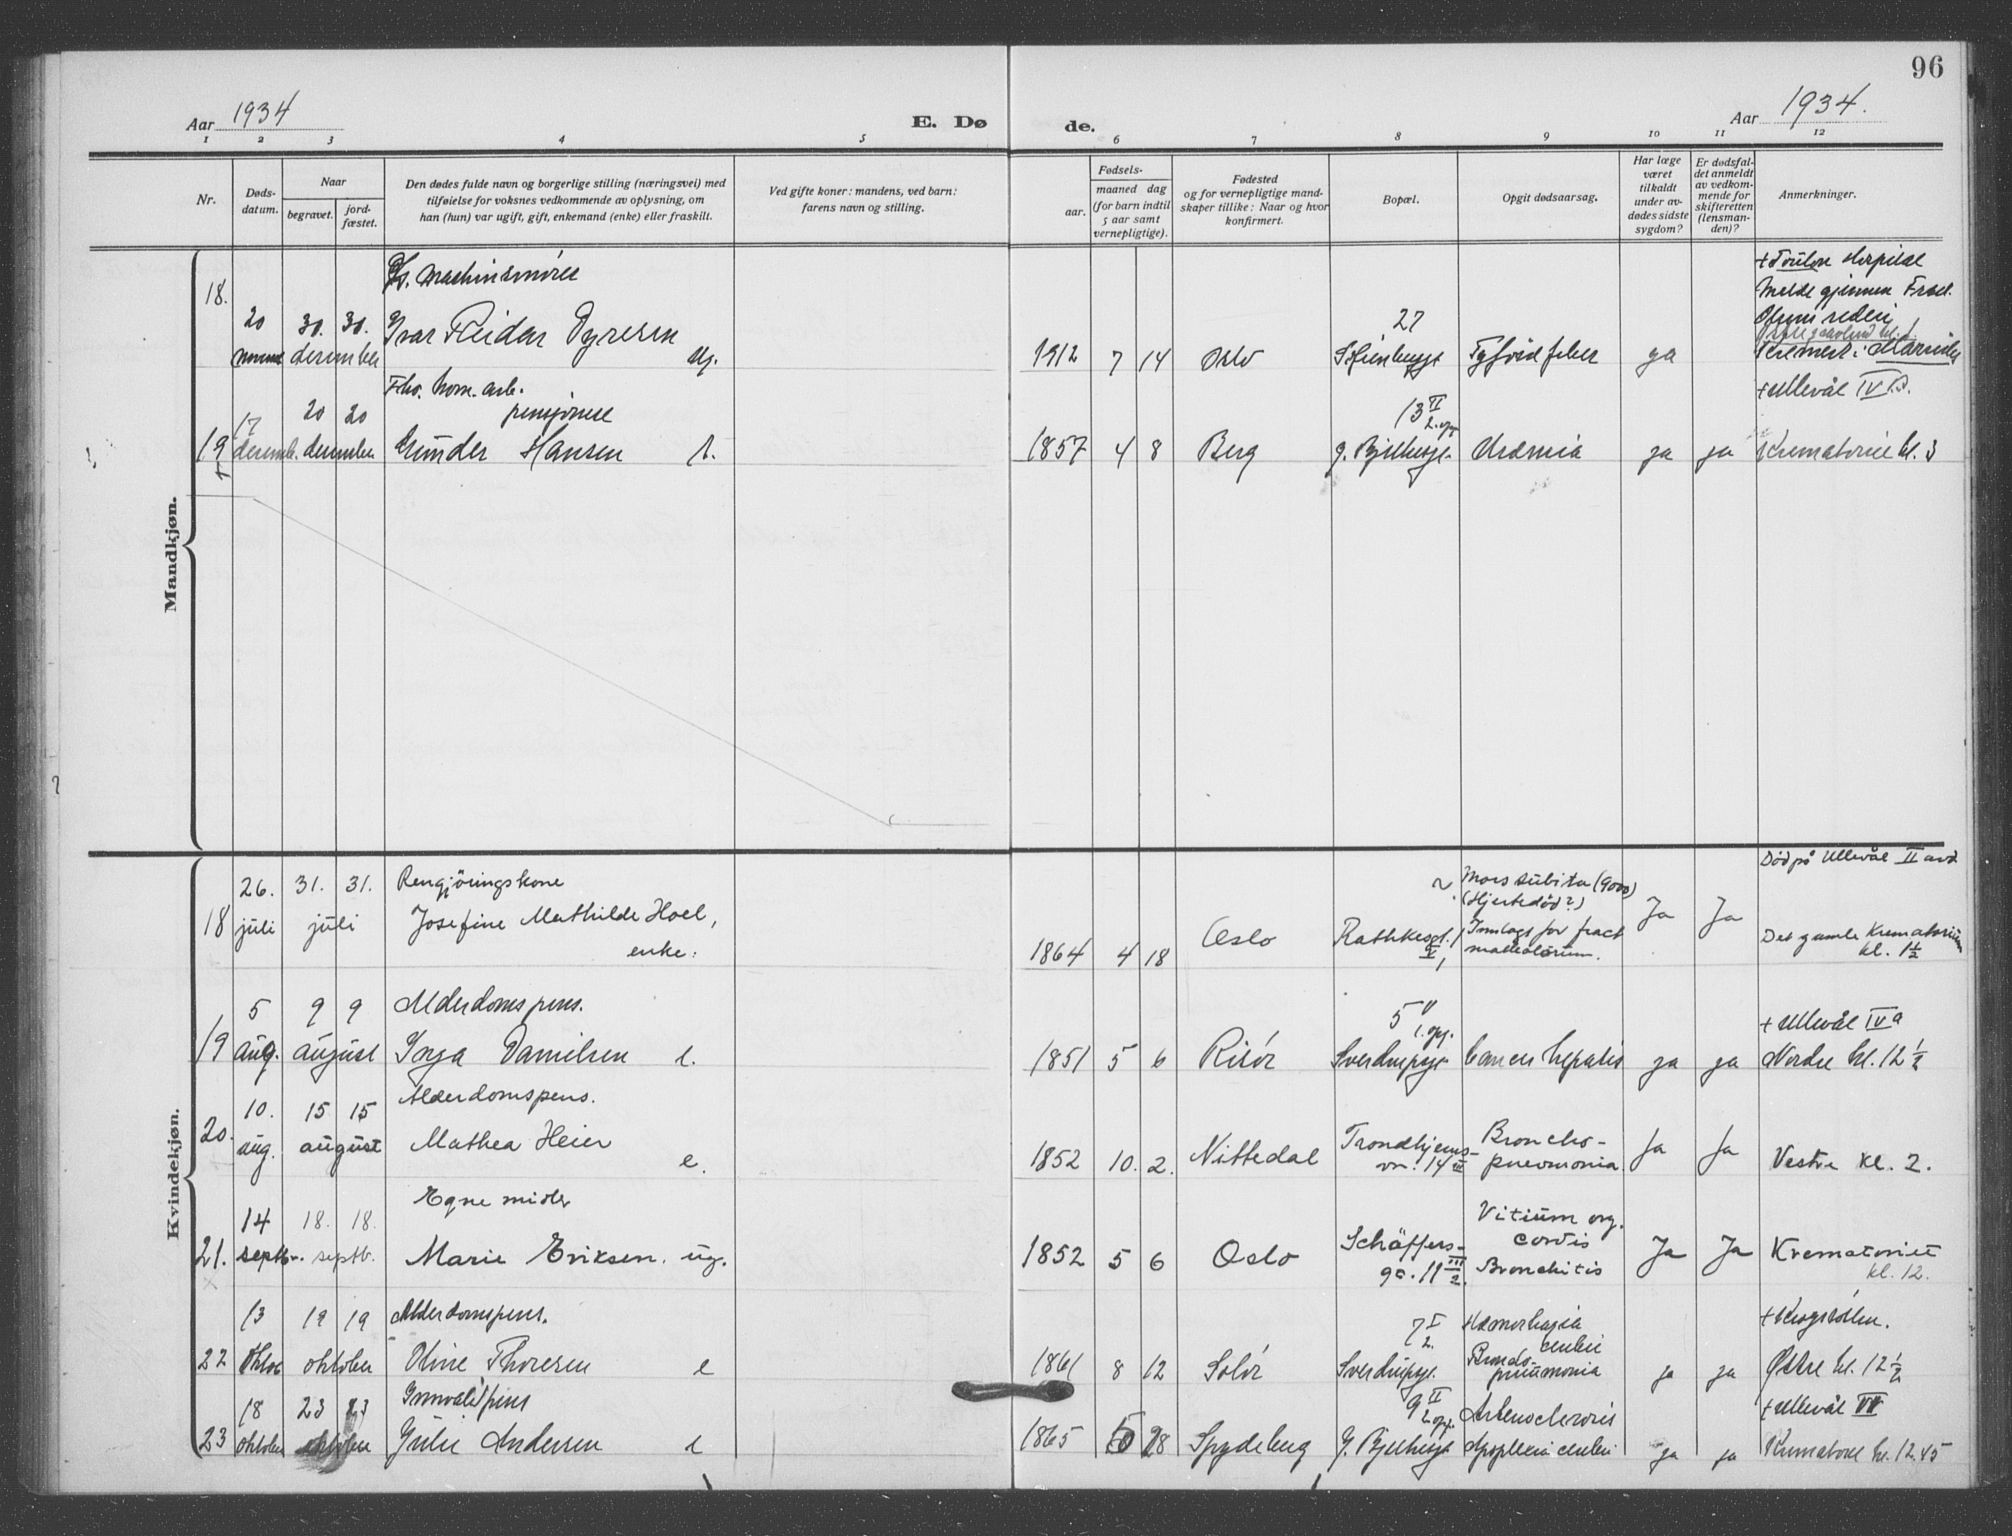 96
Aar 1934
E. Dø
de.
Aar 1934.
1 2 3 4 5 6 7 8 9 10 11 12
Nr.
Døds-
datum.
Naar
begravet.
jord-
fæstet.
Den dødes fulde navn og borgerlige stilling (næringsvei) med
tilføielse for voksnes vedkommende av oplysning, om
han (hun) var ugift, gift, enkemand (enke) eller fraskilt.
Ved gifte koner: mandens, ved barn:
farens navn og stilling.
Fødsels-
aar.
maaned dag
(for barn indtil
5 aar samt
vernepligtige).
Fødested
og for vernepligtige mand-
skaper tillike: Naar og hvor
konfirmert.
Bopæl.
Opgit dødsaarsag.
Har læge
været
tilkaldt
under av-
dødes sidste
sygdom?
Er dødsfal-
det anmeldt
av vedkom-
mende for
skifteretten
(lensman-
den)?
Anmerkninger.
Mandkjøn.
18.
20
30. 30.
desember
Maskinsmører
Ivar Reidar Dyresen ug.
1912 7 14 Oslo
27
Tyfoid feber ja
+ Toulon Hospital
Melde gjennem Fred.
Olsens rederi
19
17
desemb.
20 20
desember
Fhv. kom. arb.
pensjonist
Gunder Hansen e.
1857 4 8 Berg
13 II
2. opg
g. Bjelkesgt. Uræmia ja ja
+ Ullevål IV
Krematoriet kl. 3
Kvindekjøn.
18
26.
juli
31. 31.
juli
Rengjöringskone
Josefine Mathilde Hoel,
enke.
1864 4 18 Oslo
Rathkesgt.
Mors subita (9000)
(Hjertedød?)
Innlagt for fract
malleolorum.
Ja Ja
Død på Ullevål II avd
Det gamle Krematorium
kl. 1½
19
5
aug.
9 9
august
Alderdomspens.
Inga Danielsen e.
1851 5 6 Risör
5
1. opg.
Sverdrupsgt Cancer hepatis ja ja
+ Ullevål IV a
Nordre kl. 12½
20.
10.
aug.
15 15
august
Alderdomspens.
Mathea Heier
e.
1852 10. 2. Nittedal
Trondhjems-
vn. 14 III
Broncho-
pneumonia.
Ja Ja
Vestre kl. 2.
21.
14
septb.
18. 18.
septb.
Egne midler
Marie Eriksen. ug.
1852 5 6 Oslo
Schäffers-
gt. 11 III
2.
Vitium org.
cordis
Bronchitis
Ja Ja
Krematoriet
kl. 12.
22
13
oktob
19 19
oktober
Alderdomspens.
Oline Thoresen e
1861 8 12 Solör
7 I
2.
Sverdrupsgt.
Hæmorhagia
cerebri
Broncho
pneumonia
ja ja
+ Krogstölen.
Østre kl. 12½
23
18
oktober
23 23
oktober
Innvalidpens
Julie Andersen e
1865 5 28 Spydeberg
9 II
2. opg.
G. Bjelkesgt
Arteriosclerosis
Apoplexia cerebri
ja ja
+ Ullevål VII
Krematoriet kl. 12.45